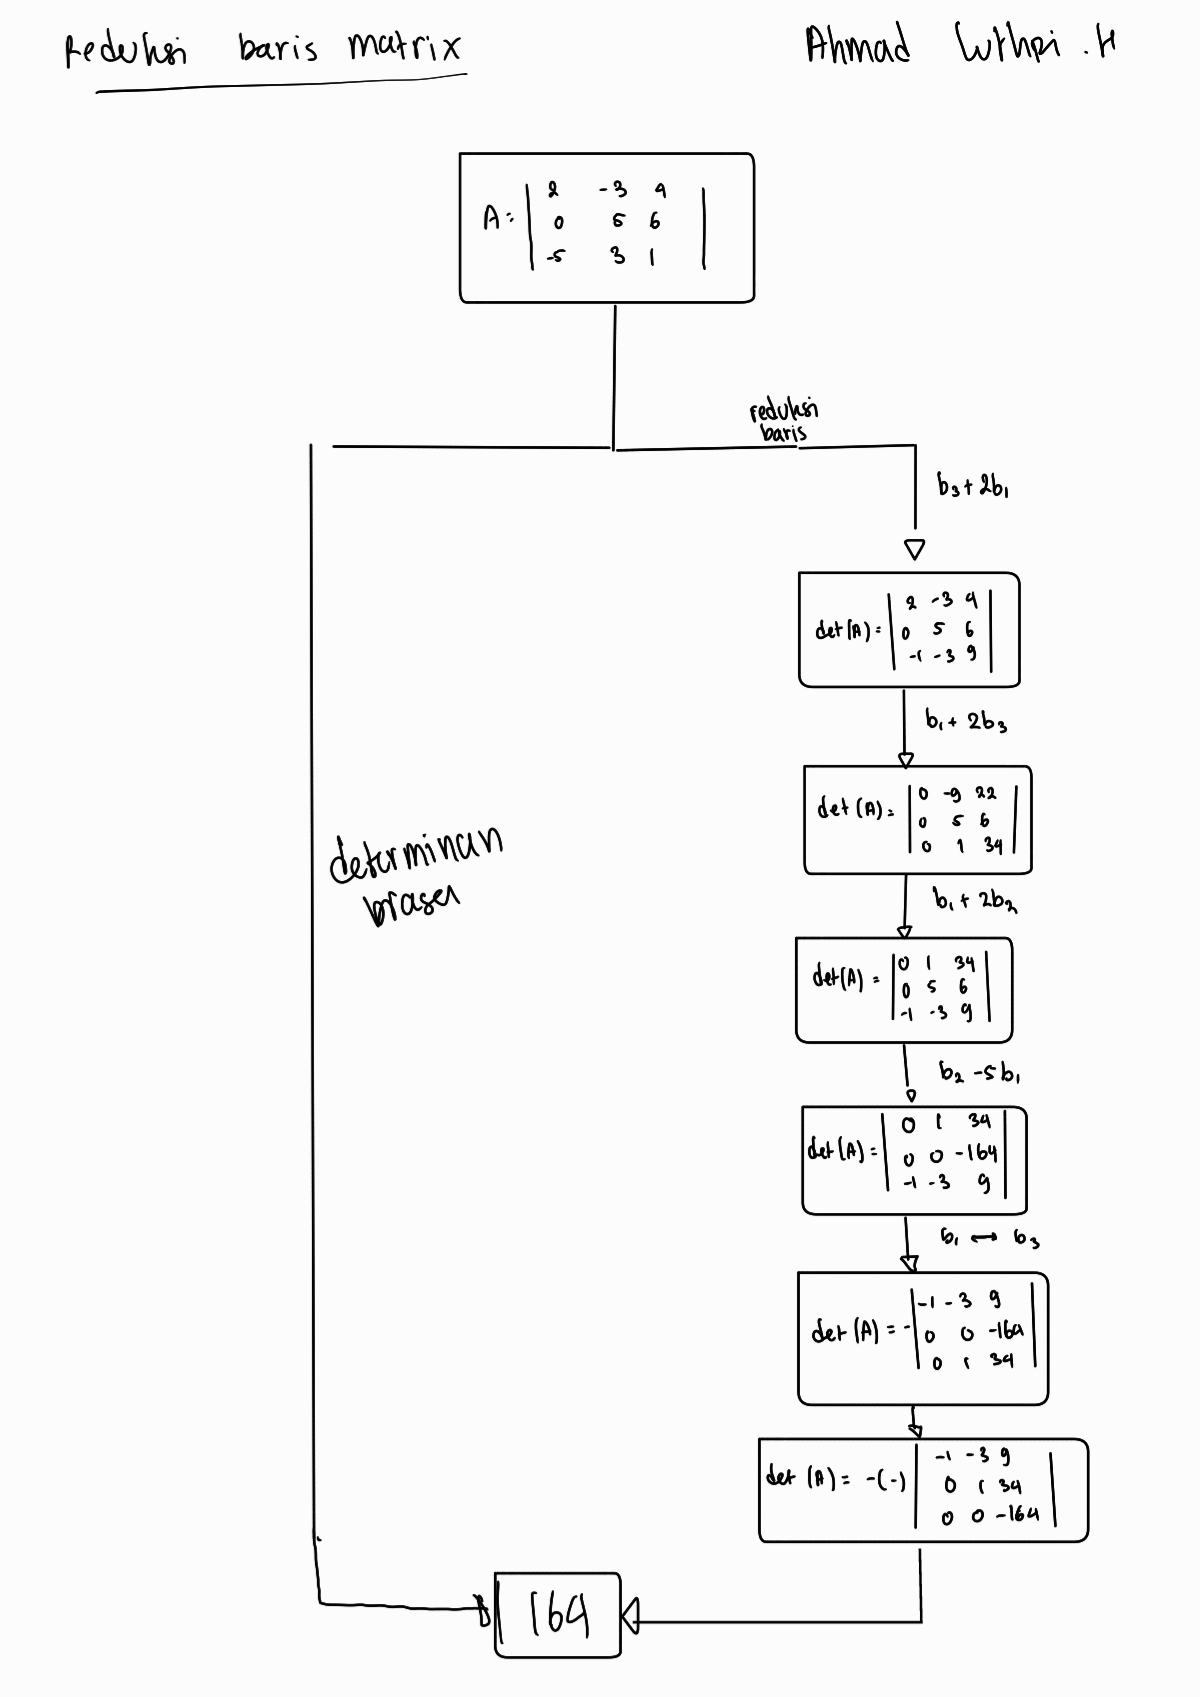 Reduksi baris matrix
Ahmad Luthpi .H
A= | 2 -3 4 |
0 5 6
-5 3 1
reduksi
baris
b3+2b1
det(A)= | 2 -3 4 |
0 5 6
-1 -3 9
b1+ 2b3
det (A)= | 0 -9 22 |
0 5 6
0 1 34
b1+ 2b2
determinan
det(A) = | 0 1 34 |
0 5 6
-1 -3 9
b2 -5b1
det(A)= | 0 1 34 |
0 0 -164
-1 -3 9
b1 ↔ b3
det (A) = - | -1 -3 9 |
0 0 -164
0 1 34
det (A) = -(-) | -1 -3 9 |
0 1 34
0 0 -164
164